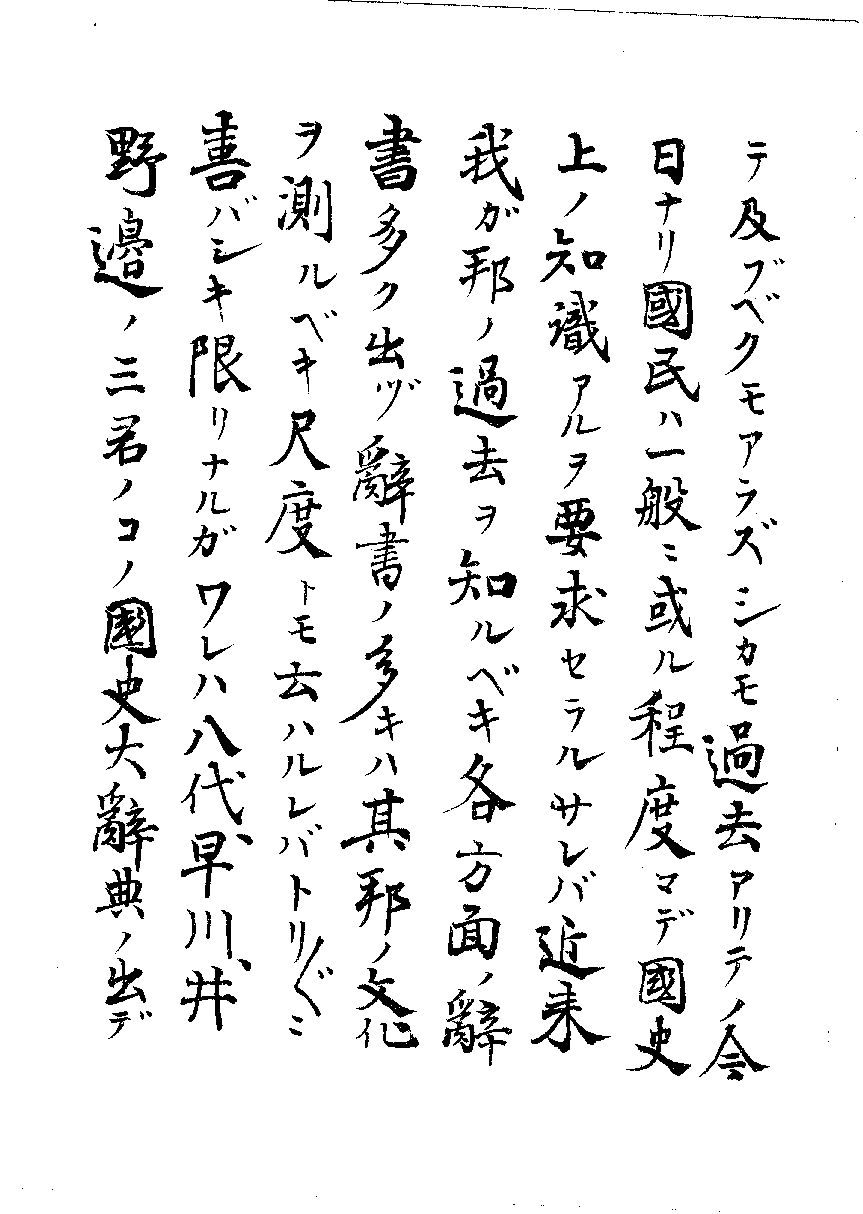 テ及ブベクモアラズシカモ過去アリテノ今
日ナリ國民ハ一般ニ或ル程度マデ國史
上ノ知識アルヲ要求セラルサレバ近来
我ガ邦ノ過去ヲ知ルベキ各方面ノ辭
書多ク出ヅ辭書ノ多キハ其邦ノ文化
ヲ測ルベキ尺度トモ云ハルレバトリ〴〵ニ
喜バシキ限リナルガワレハ八代、早川、井
野邊ノ三君ノコノ國史大辭典ノ出デ